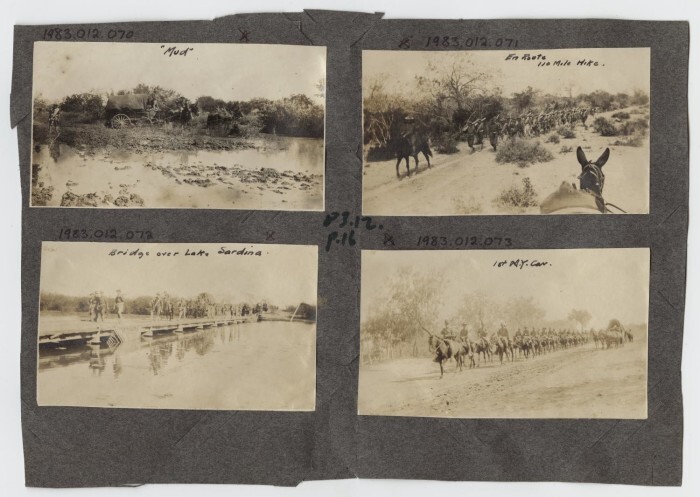 1983.012.070 x
"Mud"
x 1983.012.071
En Route
110 Mile Hike.
83.12.
P.16
1983.012.072 x
Bridge over Lake Sardina.
x 1983.012.073
1st N.Y. Cav.